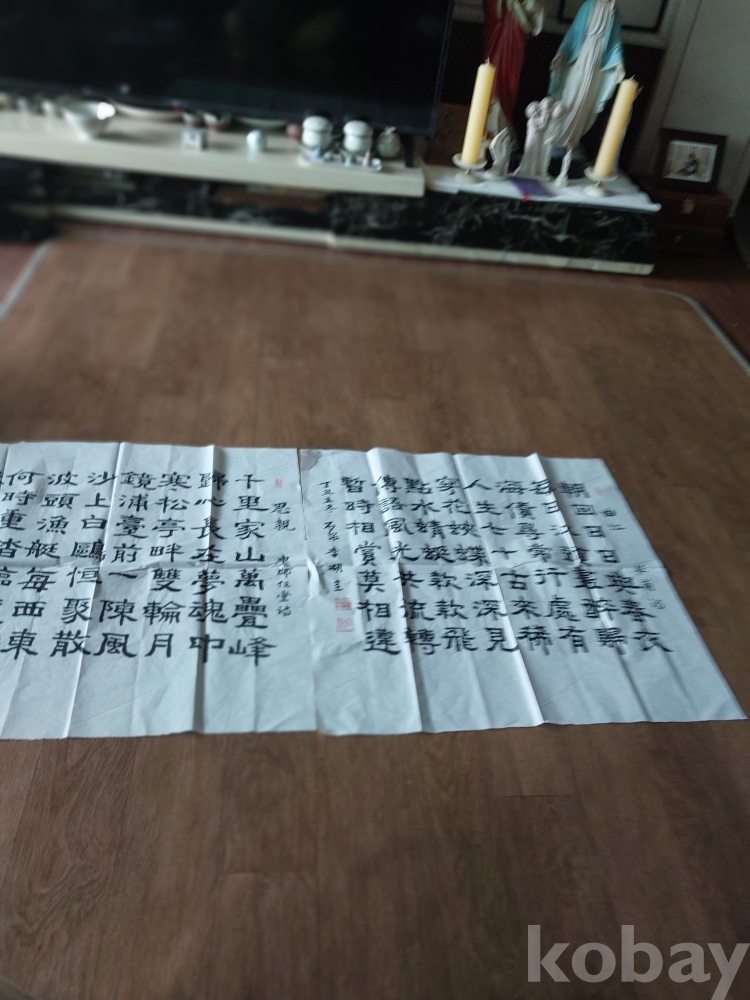 曲江
朝回日日典春衣
每日江頭盡醉歸
酒債尋常行處有
人生七十古來稀
穿花蛺蝶深深見
點水蜻蜓款款飛
傳語風光共流轉
暫時相賞莫相違
丁丑
思親 師任堂詩
千里家山萬疊峰
歸心長在夢魂中
寒松亭畔雙輪月
鏡浦臺前一陳風
沙上白鷗恒聚散
波頭漁艇每西東
何時重踏臨
kobay